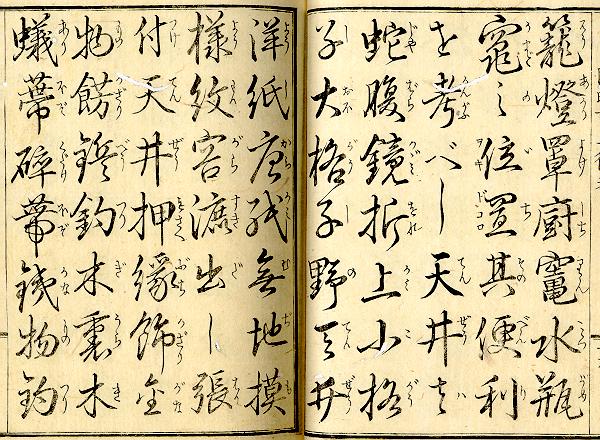 籠燈罩厨竈水瓶
竈之位置其便利
を考べし天井ハ
蛇腹鏡折上小格
子大格子野天井
洋紙唐紙無地摸
様紋漉出し張
付天井押縁飾金
物餝鋲釣木裏木
蟻蔕碎蔕銕物釣